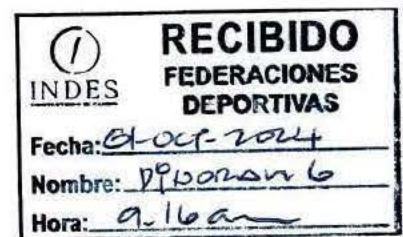 INDES
RECIBIDO
FEDERACIONES
DEPORTIVAS
Fecha: 01-Oct-2024
Nombre:
Hora: 9.16am